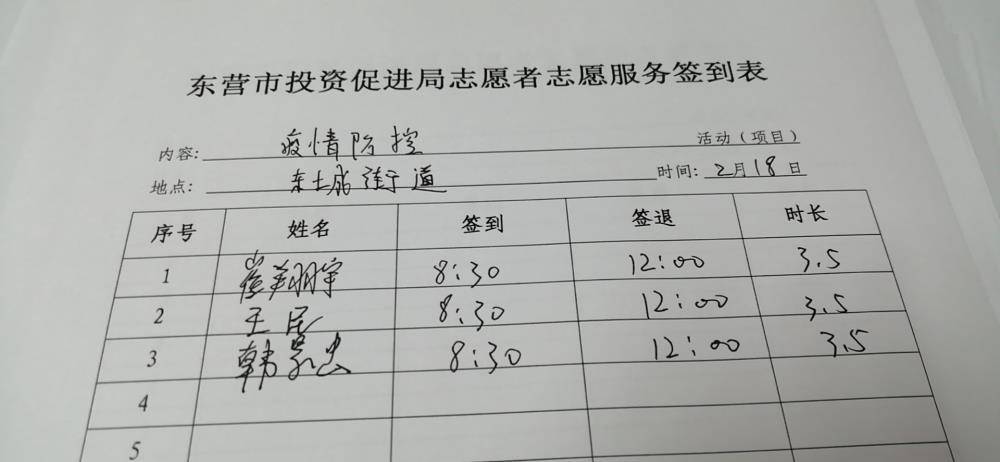 东营市投资促进局志愿者志愿服务签到表
内容: 疫情防控 活动（项目）
地点: 东城街道 时间: 2月18日
序号 姓名 签到 签退 时长
1 崔翔宇 8:30 12:00 3.5
2 王民 8:30 12:00 3.5
3 韩 8:30 12:00 3.5
4
5